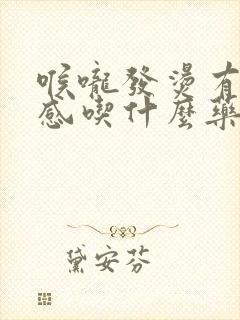 喉嚨發燙有
感喫什麼藥
黛安芬